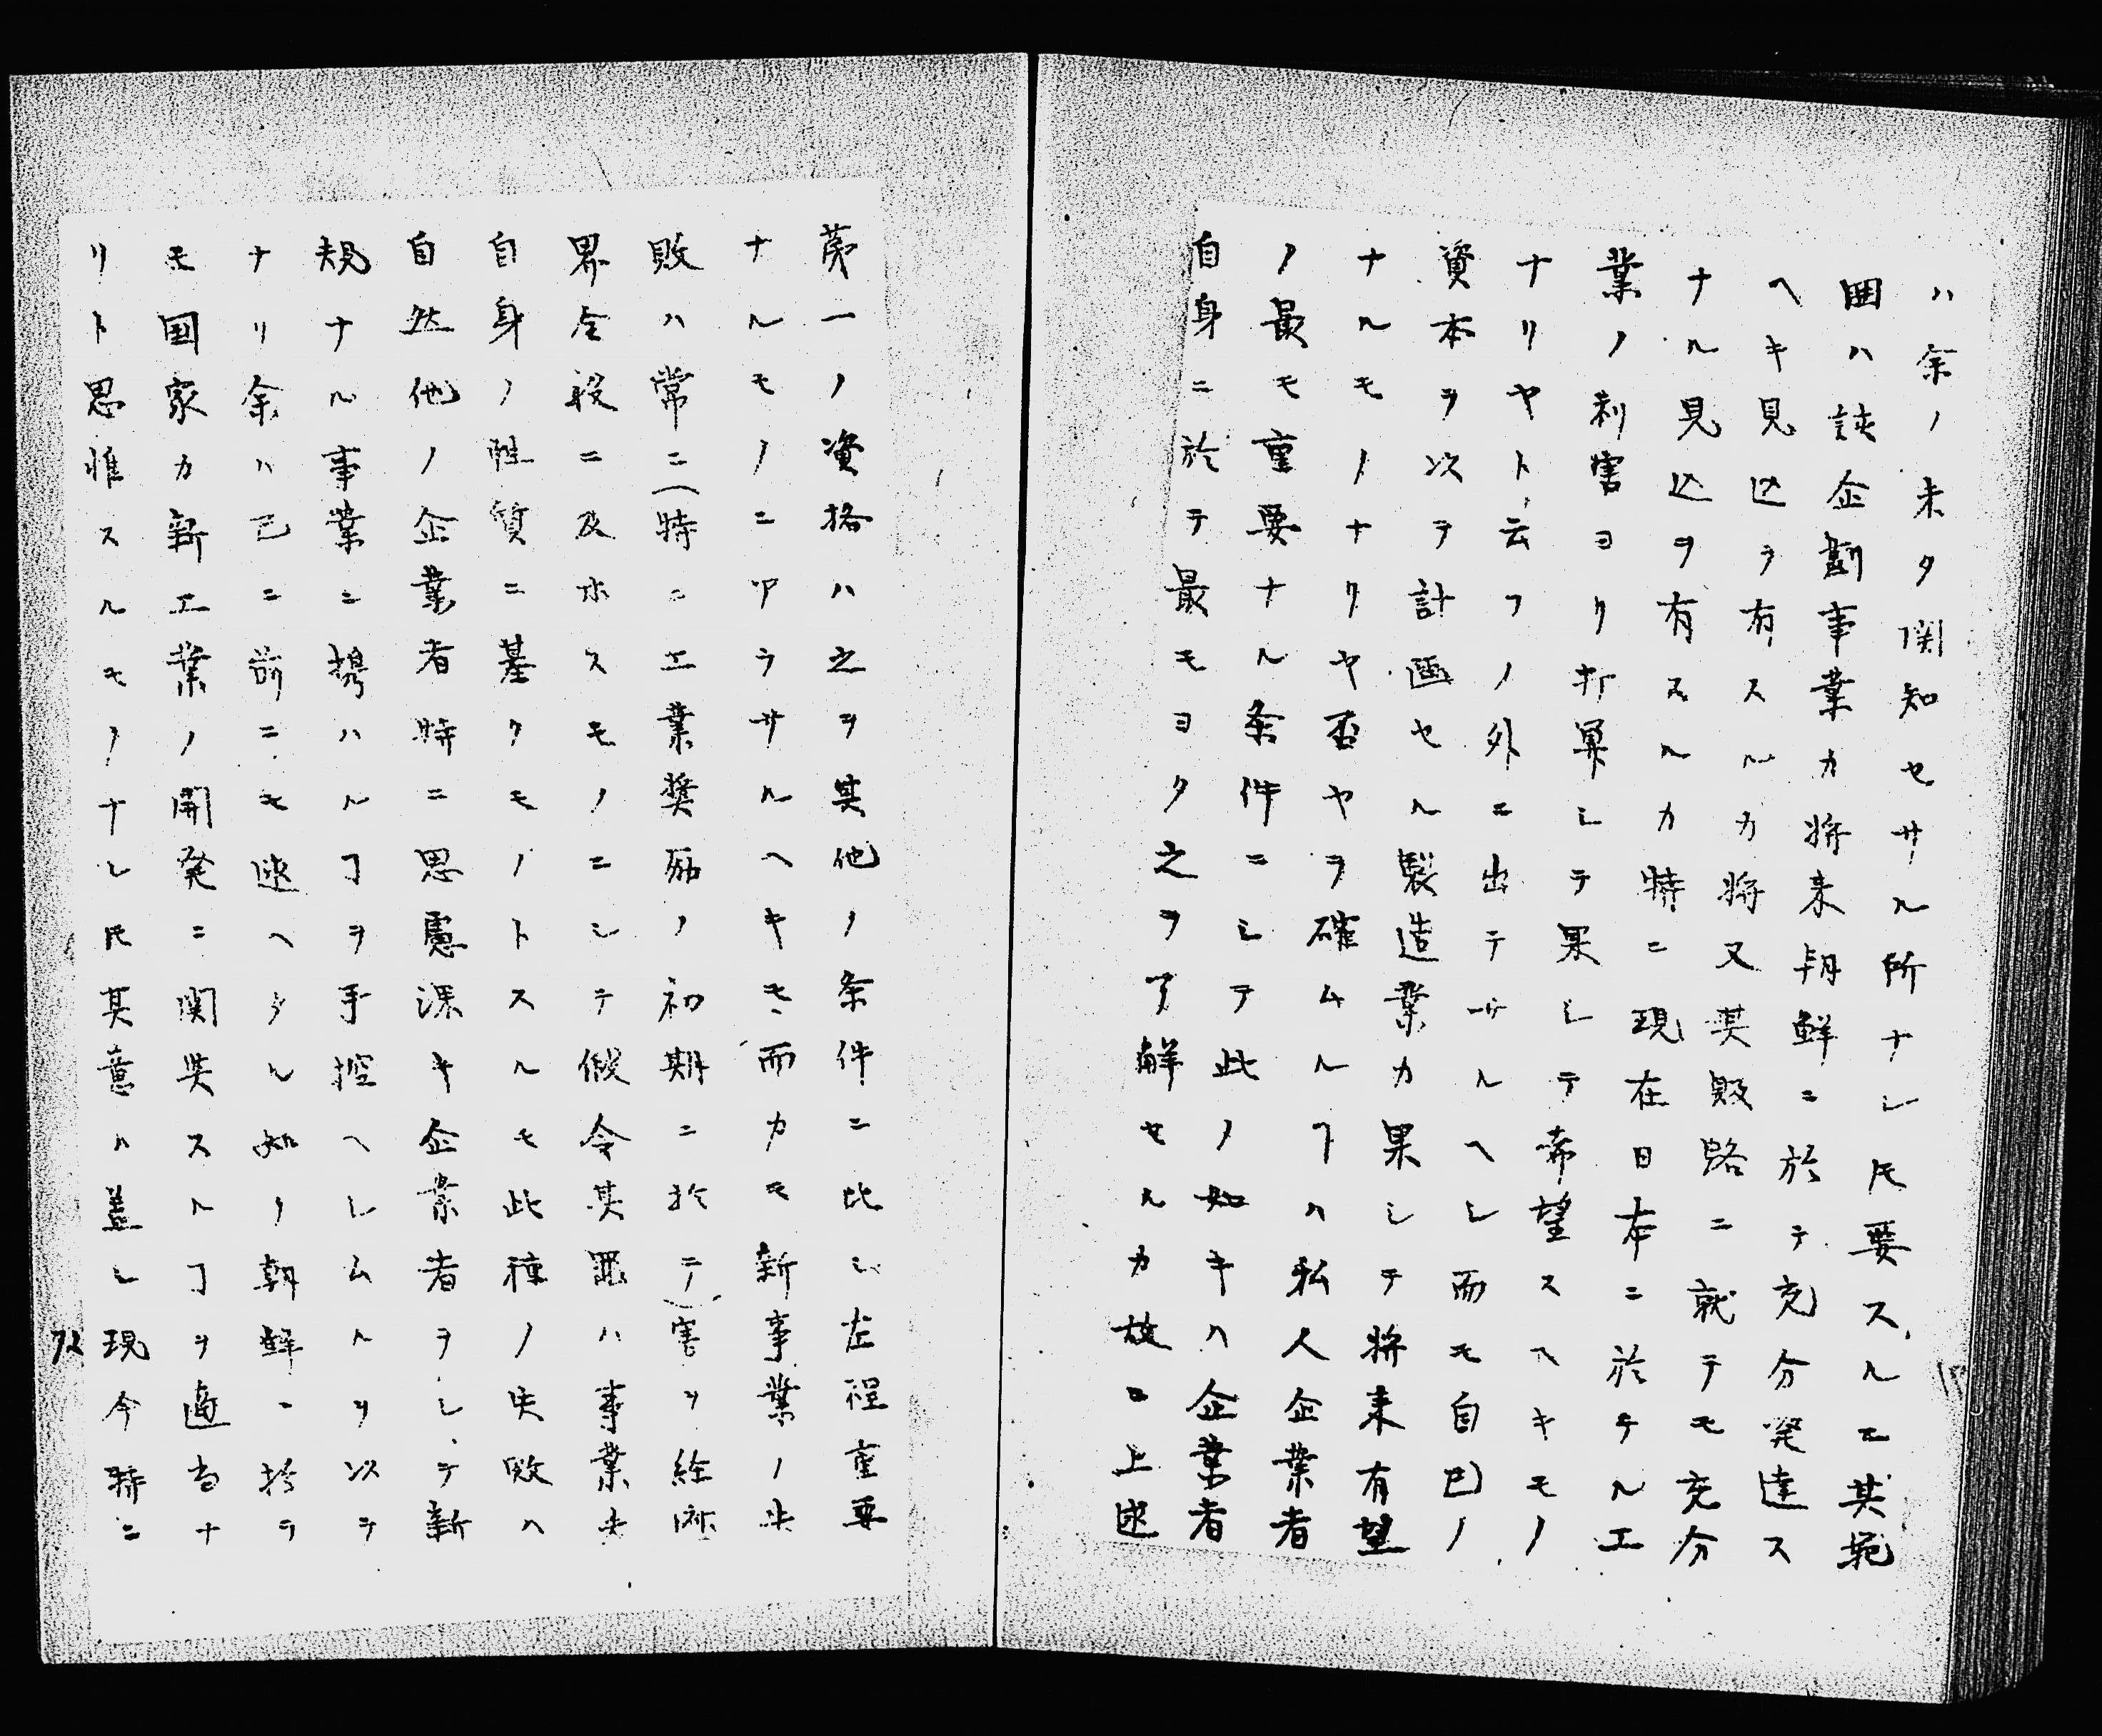 ハ余ノ未タ関知セサル所ナレ𪜈要スルニ其範
囲ハ該企劃事業カ将来朝鮮ニ於テ充分発達ス
ヘキ見込ヲ有スルカ将又其販路ニ就テモ充分
ナル見込ヲ有スルカ特ニ現在日本ニ於ケル工
業ノ利害ヨリ打算シテ果シテ希望スヘキモノ
ナリヤト云フノ外ニ出テサルヘシ而モ自己ノ
資本ヲ以テ計画セル製造業カ果シテ将来有望
ナルモノナリヤ否ヤヲ確ムルヿハ私人企業者
ノ最モ重要ナル条件ニシテ此ノ如キハ企業者
自身ニ於テ最モヨク之ヲ了解セルカ故ニ上述
第一ノ資格ハ之ヲ其他ノ条件ニ比シ左程重要
ナルモノニアラサルヘキモ而カモ新事業ノ失
敗ハ常ニ(特ニ工業奨励ノ初期ニ於テ)害ヲ経済
界全般ニ及ホスモノニシテ仮令其罪ハ事業夫
自身ノ性質ニ基クモノトスルモ此種ノ失敗ハ
自然他ノ企業者特ニ思慮深キ企業者ヲシテ新
規ナル事業ニ携ハルヿヲ手控ヘシムルヲ以テ
ナリ余ハ已ニ前ニモ述ヘタル如ク朝鮮ニ於テ
モ国家カ新工業ノ開発ニ関与スルヿヲ適当ナ
リト思惟スルモノナレ𪜈其意ハ蓋シ現今特ニ